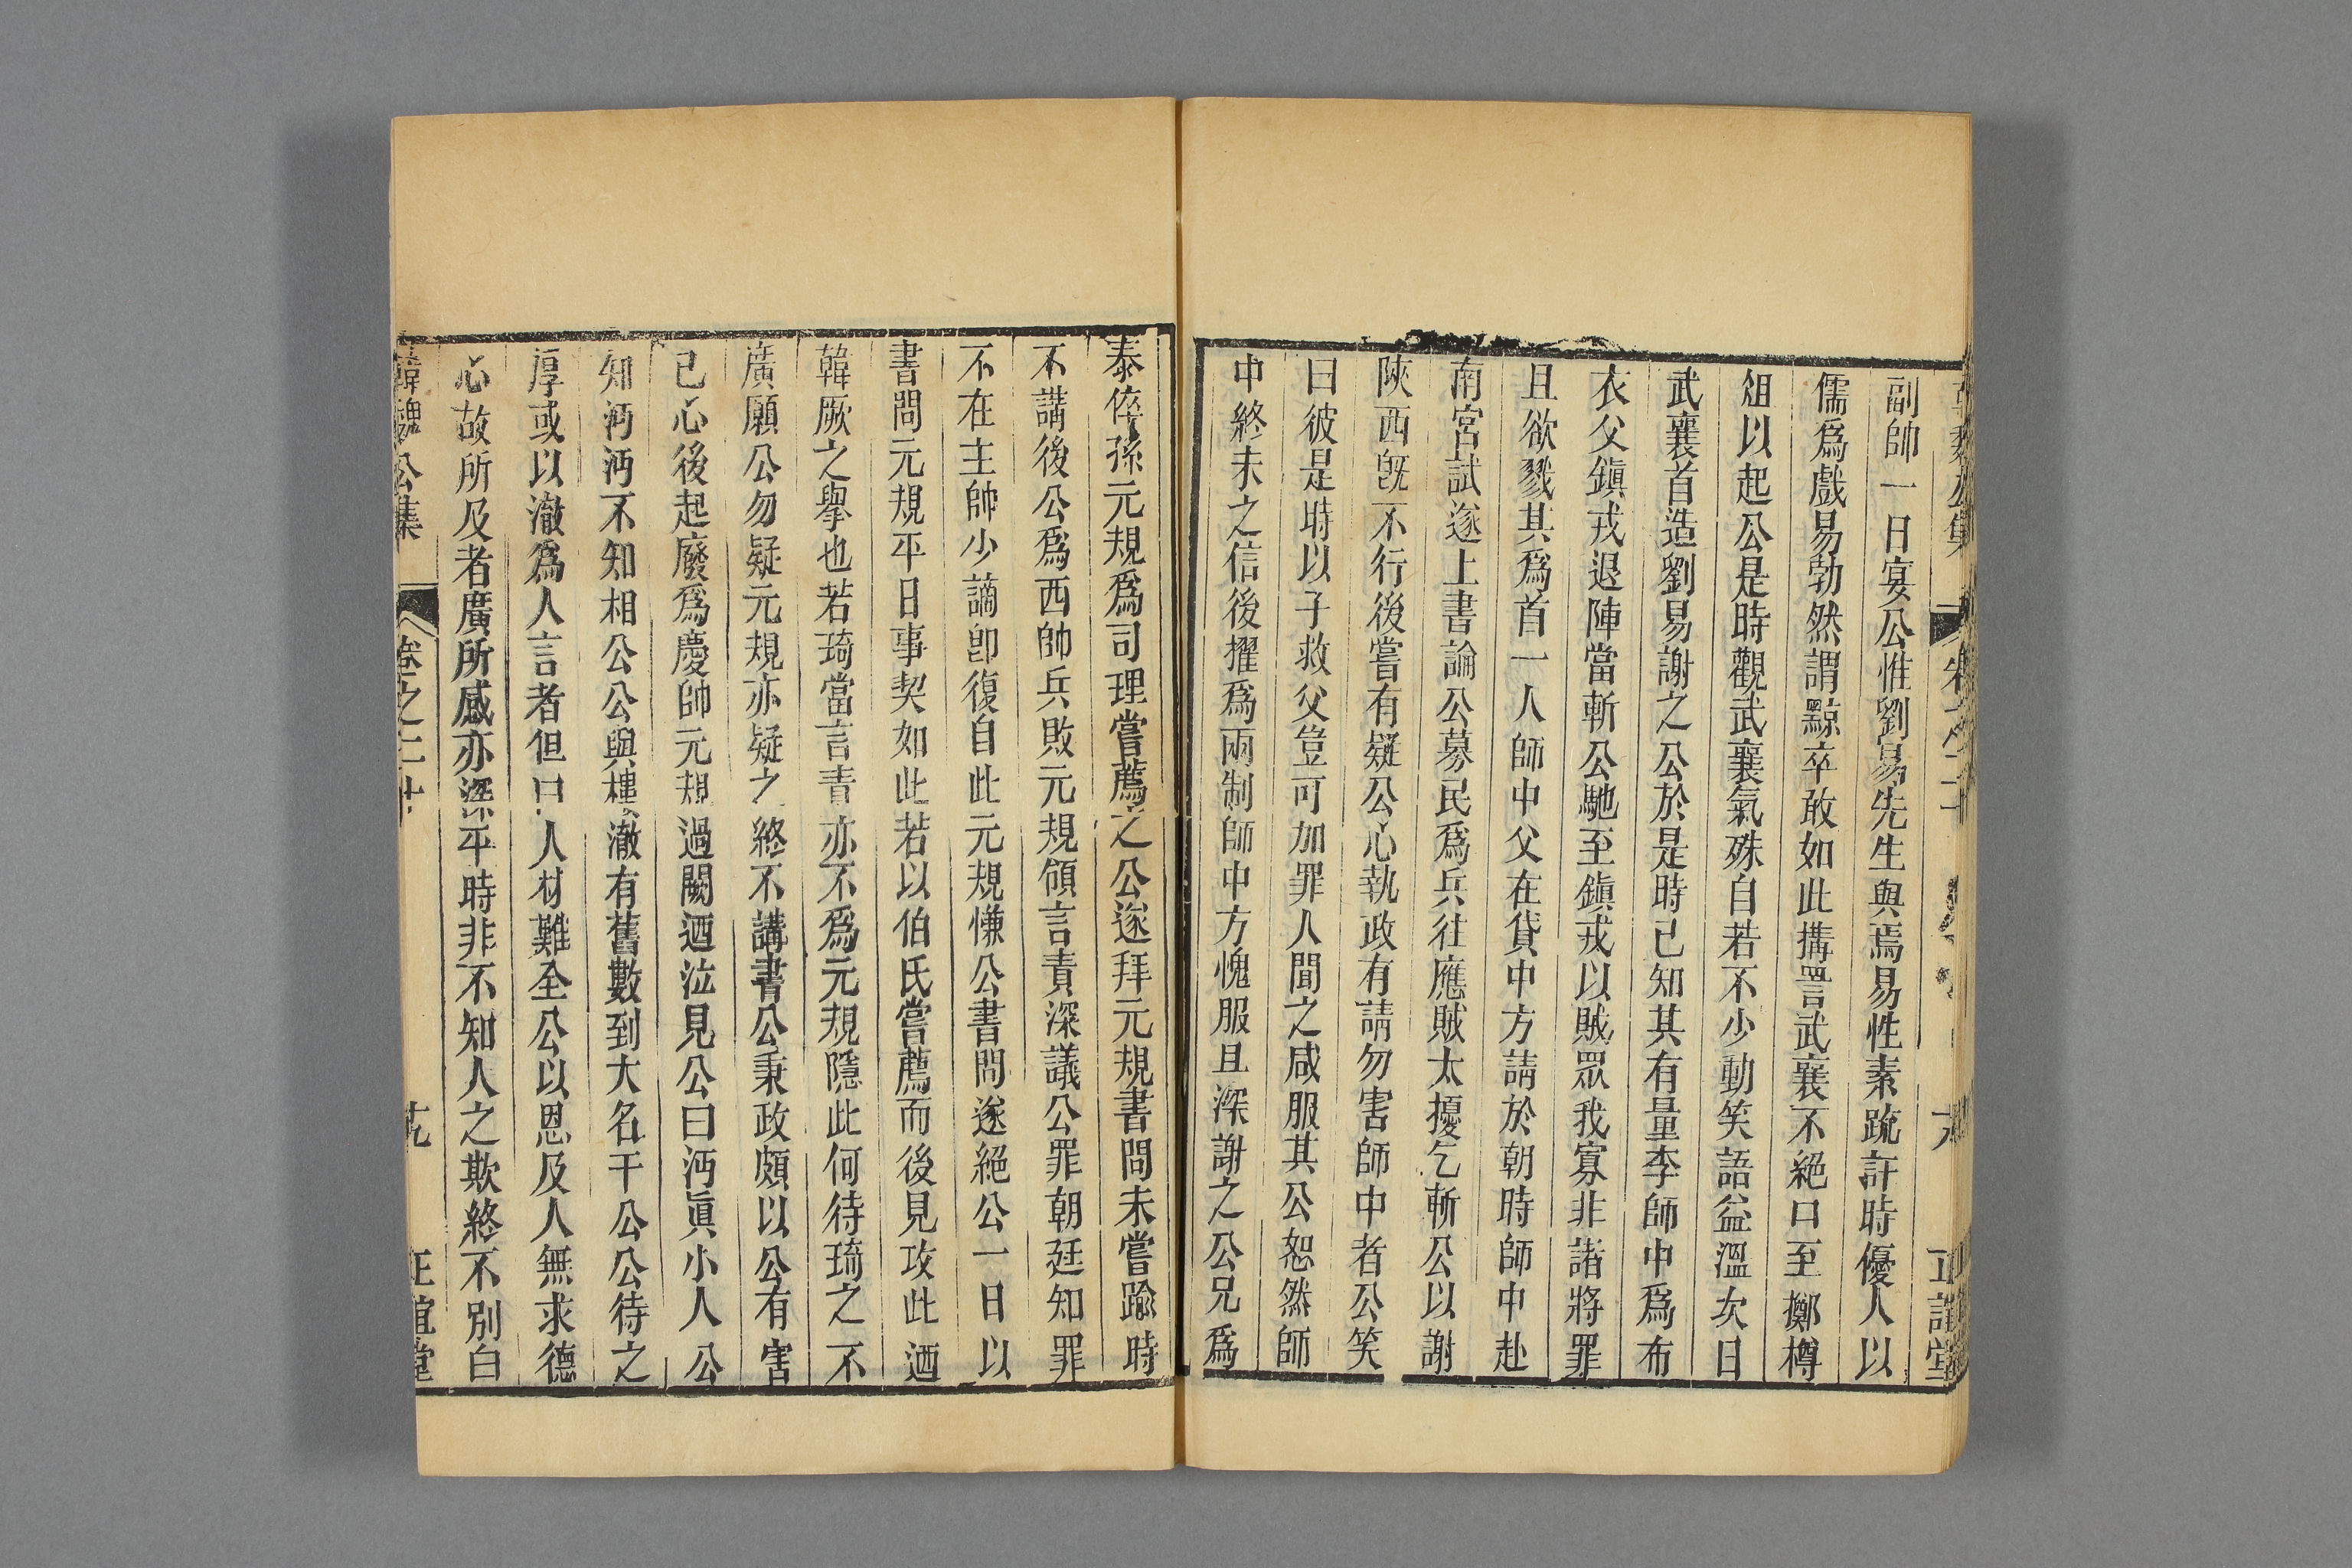 副帥一日宴公惟劉易先生與焉易性素疏訐時優人以
儒爲戲易勃然謂黥卒敢如此搆詈武襄不絕口至擲樽
俎以起公是時觀武襄氣殊自若不少動笑語益溫次日
武襄首造劉易謝之公於是時已知其有量李師中爲布
衣父鎭戎退陣當斬公馳至鎭戎以賊眾我寡非諸將罪
且欲戮其爲首一人師中父在貸中方請於朝時師中赴
南宮試遂上書論公募民爲兵往應賊太擾乞斬公以謝
陝西旣不行後嘗有疑公心執政有請勿害師中者公笑
曰彼是時以子救父豈可加罪人聞之咸服其公恕然師
中終未之信後擢爲兩制師中方愧服且深謝之公兄爲
泰倅孫元規爲司理嘗薦之公遂拜元規書問未嘗踰時
不講後公爲西帥兵敗元規領言責深議公罪朝廷知罪
不在主帥少謫卽復自此元規慊公書問遂絕公一日以
書問元規平日事契如此若以伯氏嘗薦而後見攻此迺
韓厥之擧也若琦當言責亦不爲元規隱此何待琦之不
廣願公勿疑元規亦疑之終不講書公秉政頗以公有害
己心後起廢爲慶帥元規過闕迺泣見公曰沔眞小人公
知沔沔不知相公公與樓澈有舊數到大名干公公待之
厚或以澈爲人言者但曰人材難全公以恩及人無求德
心故所及者廣所感亦深平時非不知人之欺終不別白
韓魏公集 卷之二十 十九 正誼堂